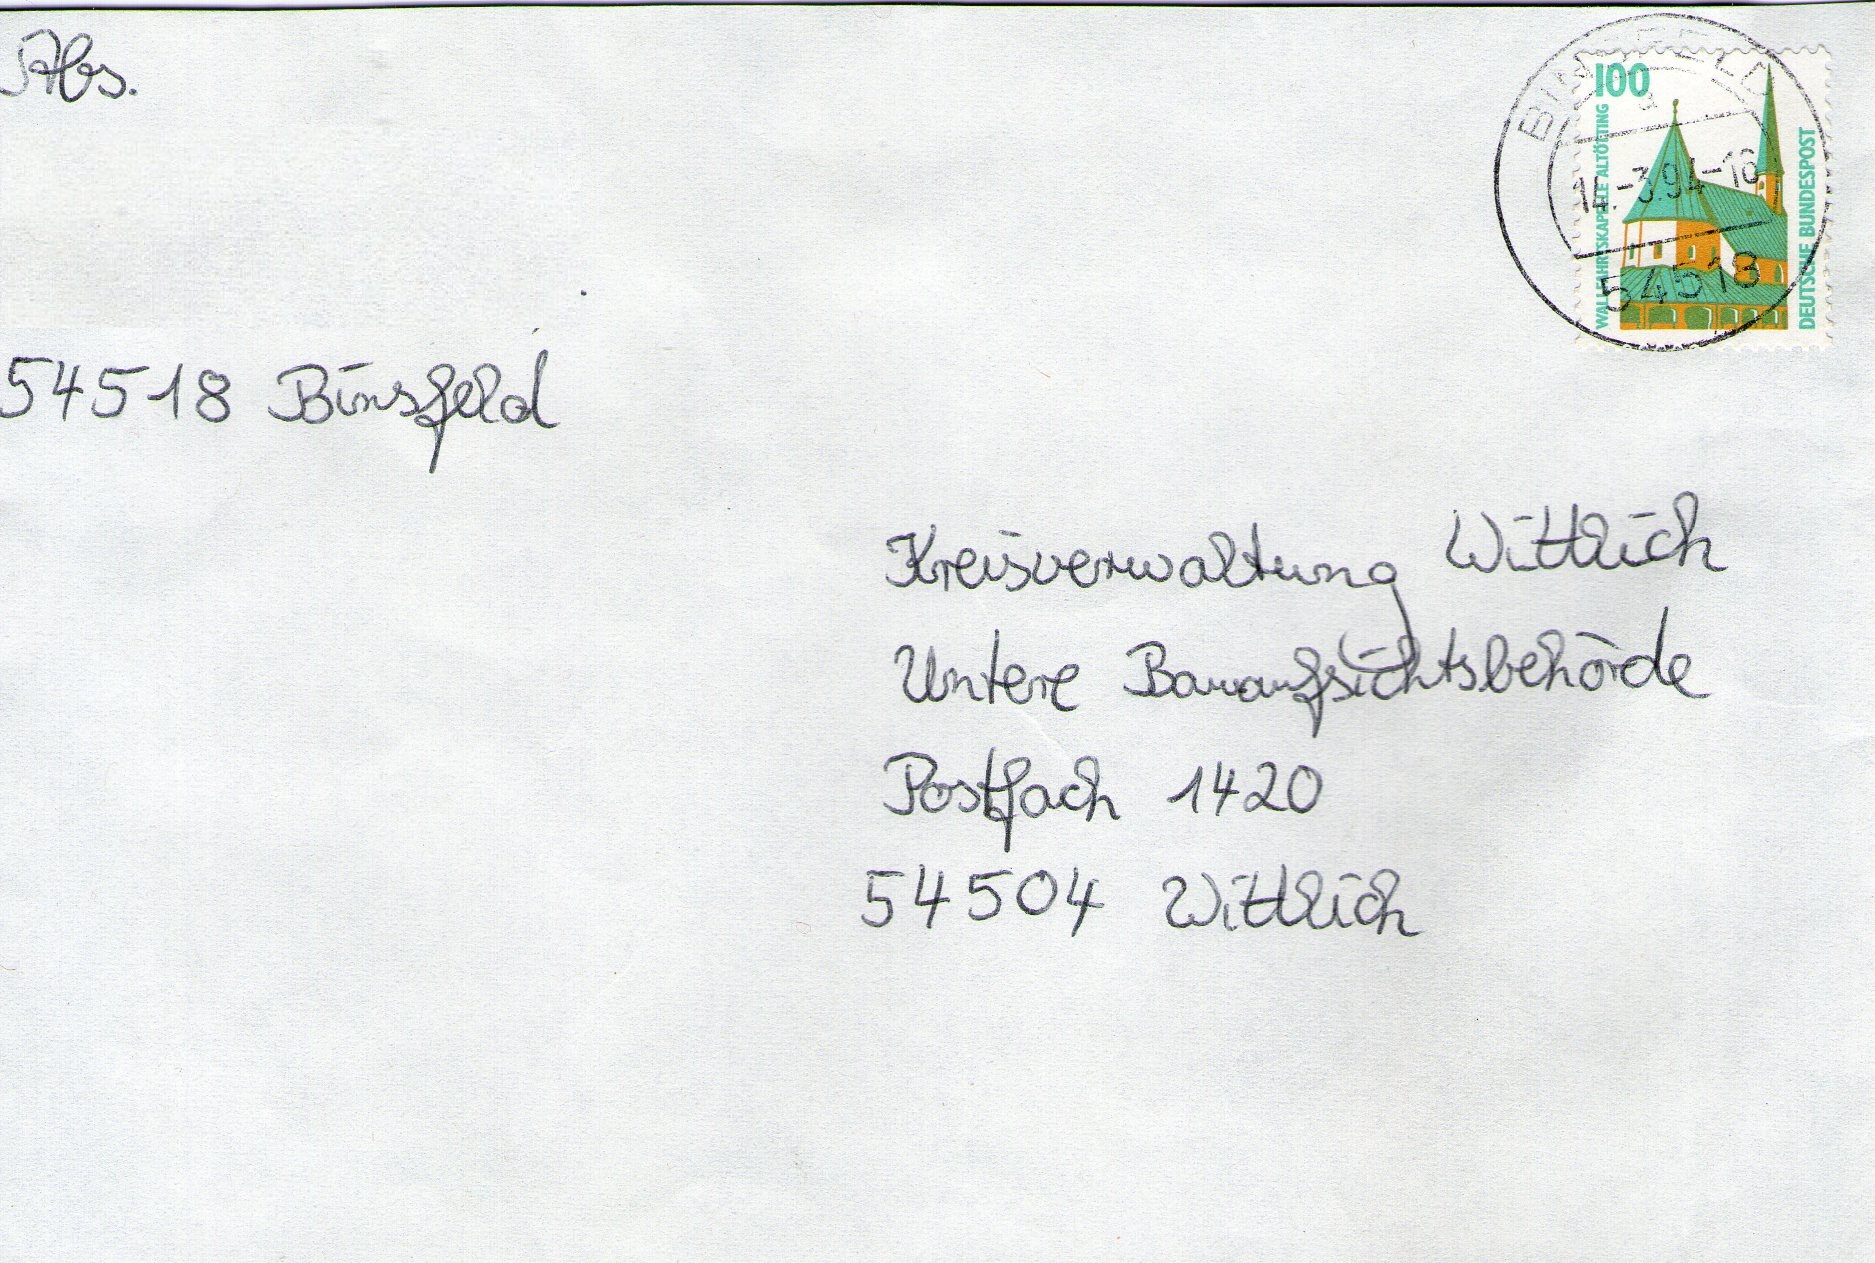 Abs.
54518 Binsfeld
100
WALLFAHRTSKAPELLE ALTÖTTING
DEUTSCHE BUNDESPOST
BINSFELD
a
14.-3.94-16
54518
Kreisverwaltung Wittlich
Untere Bauaufsichtsbehörde
Postfach 1420
54504 Wittlich